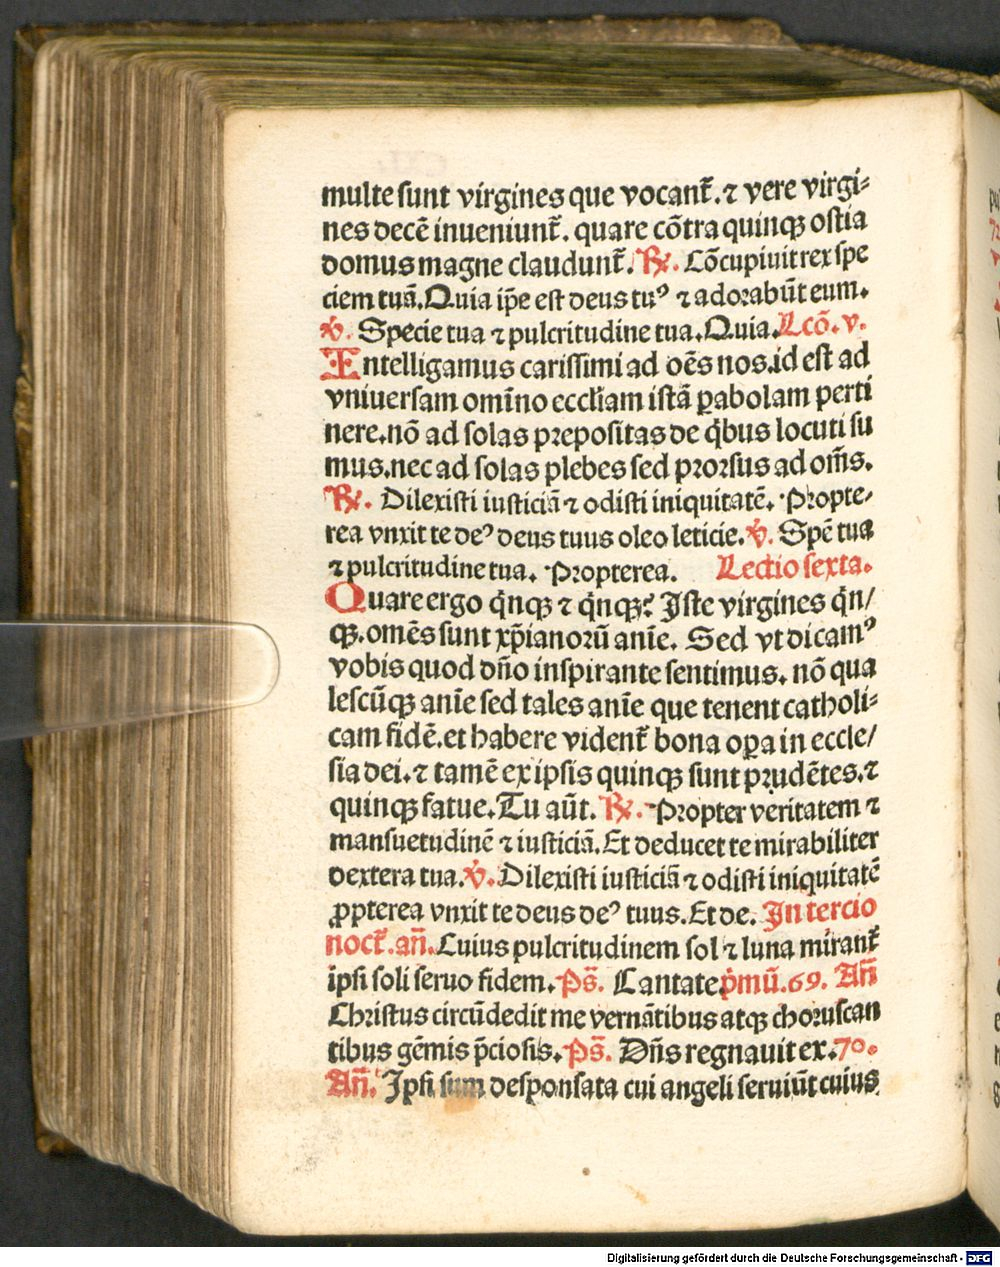 multe sunt virgines que vocant᷑. ⁊ vere virgi⸗
nes decē inveniunt᷑. quare cōtra quinqꝫ ostia
domus magne claudunt᷑. ℟. Cōcupiuit rex spe
ciem tuā. Quia ip̄e est deus tuꝰ ⁊ adorabūt eum.
℣. Specie tua ⁊ pulcritudine tua. Quia. Lcō. v.
Intelligamus carissimi ad oēs nos. id est ad
vniuersam omīno eccliam istā ꝑabolam perti
nere. nō ad solas prepositas de q̇bus locuti su
mus. nec ad solas plebes sed prorsus ad om̄s.
℟. Dilexisti iusticiā ⁊ odisti iniquitatē. Propte⸗
rea vnxit te deꝰ deus tuus oleo leticie. ℣. Spē tua
⁊ pulcritudine tua. Propterea. Lectio sexta.
Quare ergo q̇nqꝫ ⁊ q̇nqꝫ? Iste virgines q̇n/
qꝫ. omēs sunt xp̄ianorū anīe. Sed vt dicamꝰ
vobis quod dn̄o inspirante sentimus. nō qua
lescūqꝫ anīe sed tales anīe que tenent catholi⸗
cam fidē. et habere vident᷑ bona oꝑa in eccle/
sia dei. ⁊ tamē ex ipsis quinqꝫ sunt prudētes. ⁊
quinqꝫ fatue. Tu aūt. ℟. Propter veritatem ⁊
mansuetudinē ⁊ iusticiā. Et deducet te mirabiliter
dextera tua. ℣. Dilexisti iusticiā ⁊ odisti iniquitatē
ꝓpterea vnxit te deus deꝰ tuus. Et de. In tercio
noct᷑. an̄. Cuius pulcritudinem sol ⁊ luna mirant᷑
ipsi soli seruo fidem. Ps̄. Cantate ṗmū. 69. An̄
Christus circūdedit me vernātibus atqꝫ choruscan
tibus gēmis p̄ciosis. Ps̄. Dn̄s regnauit ex. 70.
An̄. Ipsi sum desponsata cui angeli seruiūt cuius
Digitalisierung gefördert durch die Deutsche Forschungsgemeinschaft - DFG